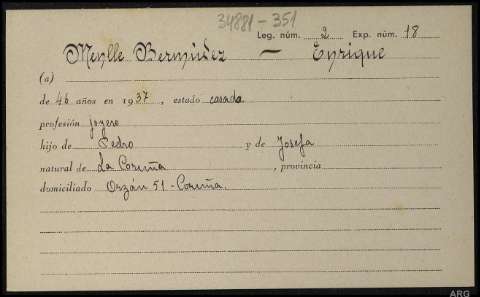 34881-351
Leg. núm. 2 Exp. núm. 18
Meylle Bermúdez — Enrique
(a)
de 46 años en 1937, estado casado
profesión joyero
hijo de Pedro y de Josefa
natural de La Coruña, provincia
domiciliado Orzán 51-Coruña.
ARG